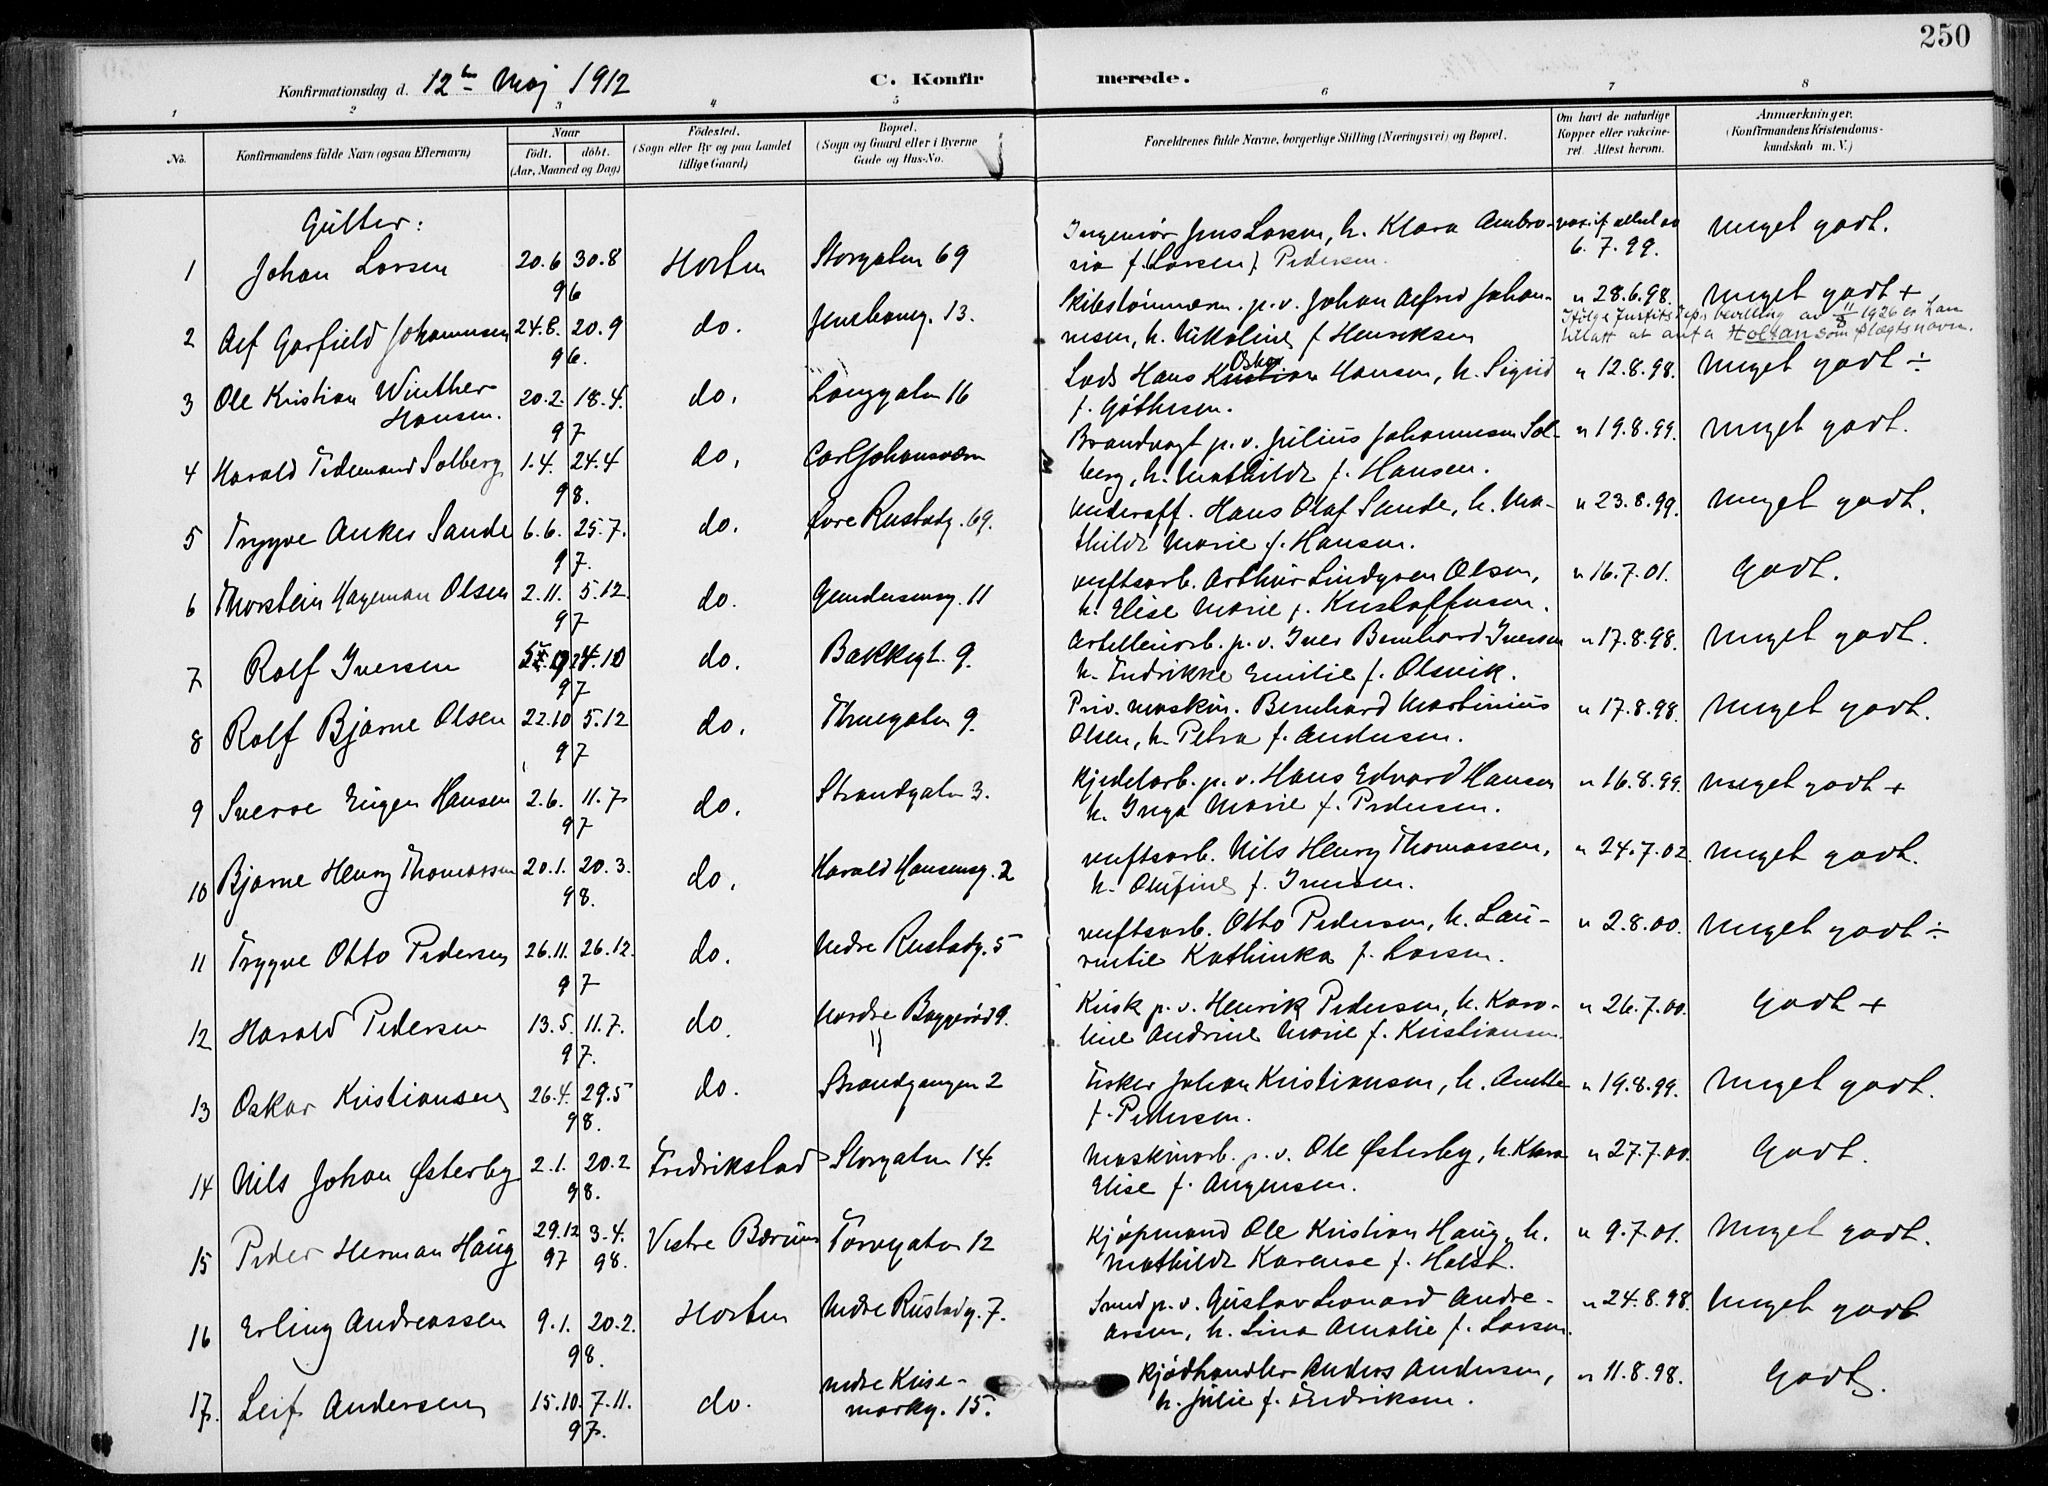 250
Konfirmationsdag d. 12te Maj 1912 C. Konfirmerede.
1 2 3 4 5 6 7 8
No. Konfirmandens fulde Navn (ogsaa Efternavn) Naar født. døbt. (Aar, Maaned og Dag) Fødested. (Sogn eller By og paa Landet tillige Gaard) Bopæl. (Sogn og Gaard eller i Byerne Gade og Hus-No. Forældrenes fulde Navne, borgerlige Stilling (Næringsvei) og Bopæl. Om havt de naturlige Kopper eller vakcineret. Attest herom. Anmærkninger. (Konfirmandens Kristendomskundskab m. V.)
Gutter:
1 Johan Larsen 20.6 30.8 96 Horten Storgaten 69 Ingeniør Jens Larsen, h. Klara Ambrosia f. (Larsen) Pedersen. vax. if. attest av 6.7.99. Meget godt.
2 Alf Garfield Johannesen 24.8. 20.9 96. do. 13. Skibstømmerm. p.v. Johan Alfred Johannesen, h. Nikoline f. Henriksen " 28.6.98. Meget godt +
Ifølge Justits Dep's bevilling av 11/8 1926 er han tillatt at anta Holtan som slægtsnavn.
3 Ole Kristian Winther Hansen. 20.2. 18.4. 97 do. Langgaten 16 Lods Hans Kristian Oskar Hansen, h. Sigrid f. Gøthesen. " 12.8.98. Meget godt ÷
4 Harald Tidemand Solberg 1.4. 24.4 98. do. Carljohansværn Brandvagt p.v. Julius Johannesen Solberg, h. Mathilde f. Hansen. " 19.8.99. Meget godt.
5 Trygve Anker Sande 6.6. 25.7. 97. do. Øvre Rustadg. 69. Underoff. Hans Olaf Sande, h. Mathilde Marie f. Hansen. " 23.8.99. Meget godt.
6 Thorstein Hageman Olsen 2.11. 5.12. 97 do. Gundersensg. 11 verftsarb. Arthur Lindgren Olsen, h. Elise Marie f. Kristoffersen. " 16.7.01. Godt.
7 Rolf Iversen 24.10 97 do. Bakkegt. 9. Artilleriarb. p.v. Iver Bernhard Iversen h. Fredrikke Emilie f. Olsvik. " 17.8.98. Meget godt.
8 Rolf Bjarne Olsen 22.10 5.12 97 do. Thuegaten 9. Priv. maskin. Bernhard Martinius Olsen, h. Petra f. Andersen. " 17.8.98. Meget godt.
9 Sverre Eugen Hansen 2.6. 11.7 97 do. Strandgaten 3. Kjedelarb. p.v. Hans Edvard Hansen h. Inga Marie f. Pedersen. " 16.8.99. Meget godt +
10 Bjarne Henry Thomassen 20.1. 20.3. 98. do. Harald Hansensg. 2 verftsarb. Nils Henry Thomassen, h. Olufine f. Iversen. " 24.7.02. Meget godt.
11 Trygve Otto Pedersen 26.11. 26.12. 97 do. Nedre Rustadg. 5 verftsarb. Otto Pedersen, h. Laurentie Kathinka f. Larsen. " 2.8.00. Meget godt ÷
12 Harald Pedersen 13.5. 11.7. 97. do. Nordre Baggerød 9. Kusk p.v. Henrik Pedersen, h. Karoline Andrine Marie f. Kristiansen " 26.7.00. Godt +
13 Oskar Kristiansen 26.4. 29.5 98. do. Strandgangen 2 Fisker Johan Kristiansen, h. Anette f. Pedersen. " 19.8.99. Meget godt.
14 Nils Johan Østerby 2.1. 20.2 98. Fredrikstad Storgaten 14. Maskinarb. p.v. Ole Østerby, h. Klara Elise f. Jørgensen. " 27.7.00. Godt.
15 Peder Herman Haug 29.12 97 3.4. 98. Vestre Bærum Torvgaten 12 Kjøpmand Ole Kristian Haug, h. Mathilde Karense f. Holst. " 9.7.01. Meget godt.
16 Erling Andreassen 9.1. 20.2. 98. Horten Nedre Rustadg. 7. Smed p.v. Gustav Leonard Andreassen, h. Lina Amalie f. Larsen. " 24.8.98. Meget godt
17. Leif Andersen 15.10. 7.11. 97. do. Nedre Keisemarkg. 15. Kjødhandler Anders Andersen, h. Julie f. Fredriksen. " 11.8.98. Godt.